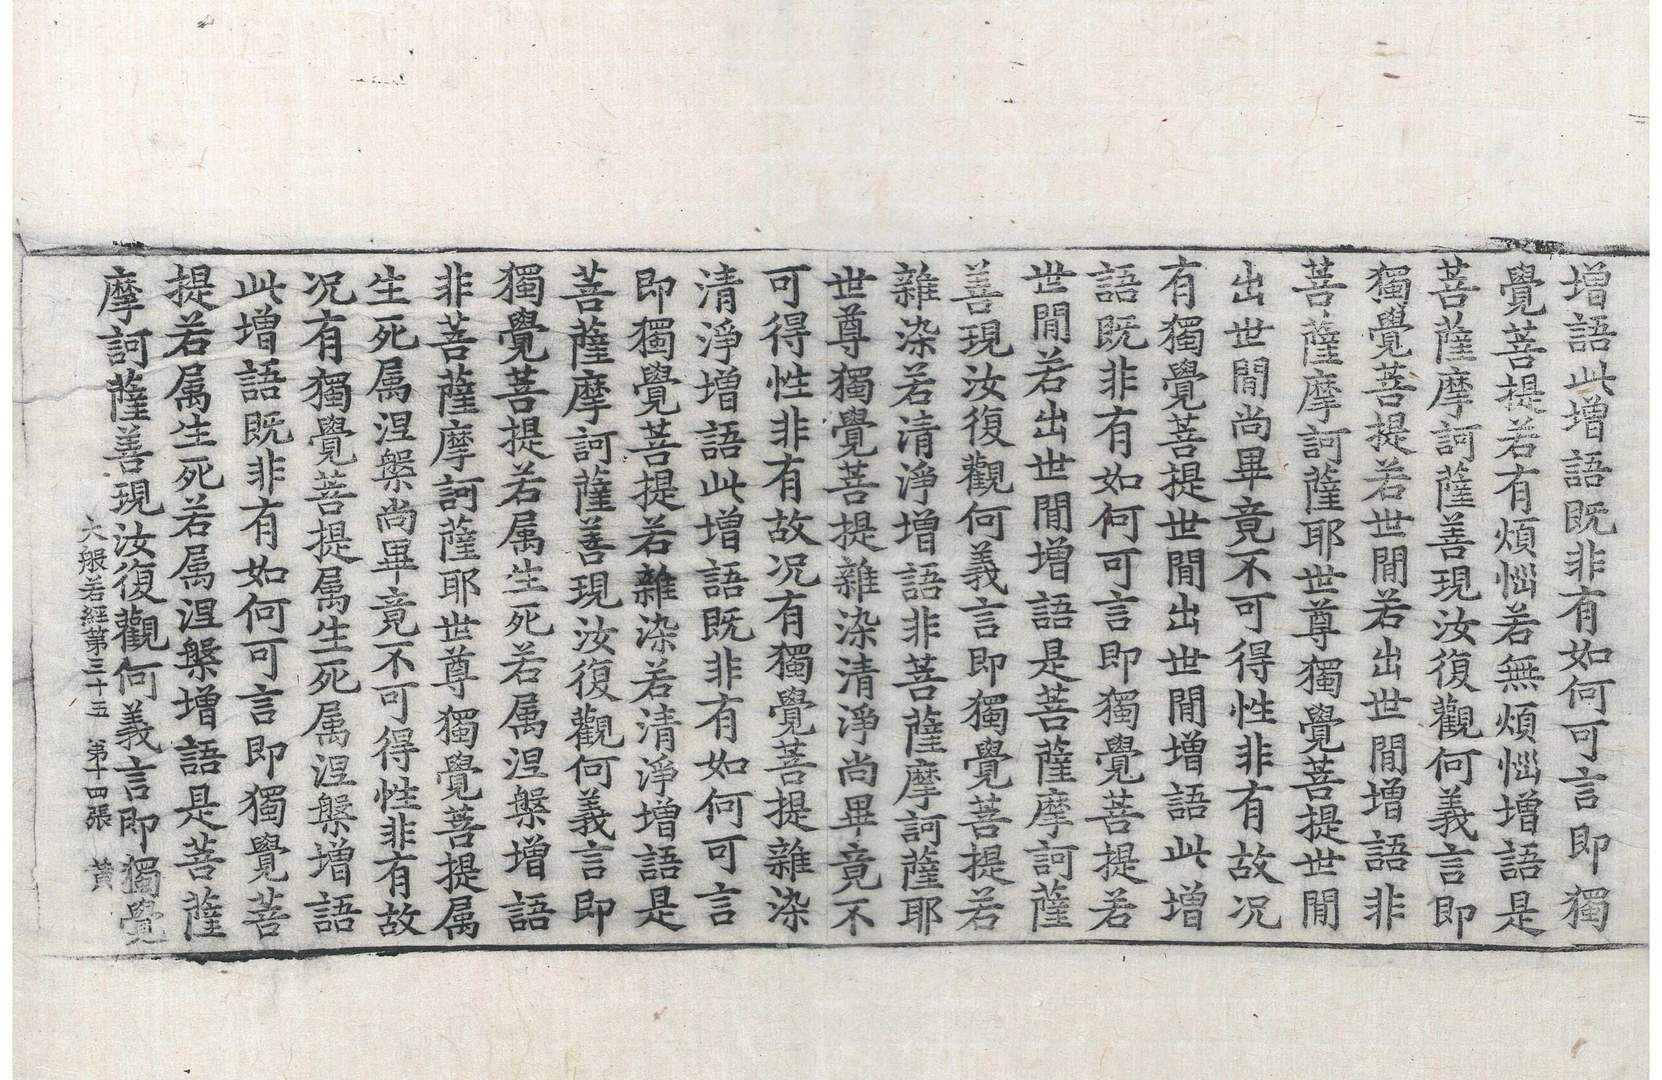 增語此增語既非有如何可言即獨
覺菩提若有煩惱若無煩惱增語是
菩薩摩訶薩善現汝復觀何義言即
獨覺菩提若世間若出世間增語非
菩薩摩訶薩耶世尊獨覺菩提世間
出世間尚畢竟不可得性非有故况
有獨覺菩提世間出世間增語此增
語既非有如何可言即獨覺菩提若
世間若出世間增語是菩薩摩訶薩
善現汝復觀何義言即獨覺菩提若
雜染若清淨增語非菩薩摩訶薩耶
世尊獨覺菩提雜染清淨尚畢竟不
可得性非有故况有獨覺菩提雜染
清淨增語此增語既非有如何可言
即獨覺菩提若雜染若清淨增語是
菩薩摩訶薩善現汝復觀何義言即
獨覺菩提若属生死若属涅槃增語
非菩薩摩訶薩耶世尊獨覺菩提属
生死属涅槃尚畢竟不可得性非有故
况有獨覺菩提属生死属涅槃增語
此增語既非有如何可言即獨覺菩
提若属生死若属涅槃增語是菩薩
摩訶薩善現汝復觀何義言即獨覺
大般若經第三十五 第十四張 黃